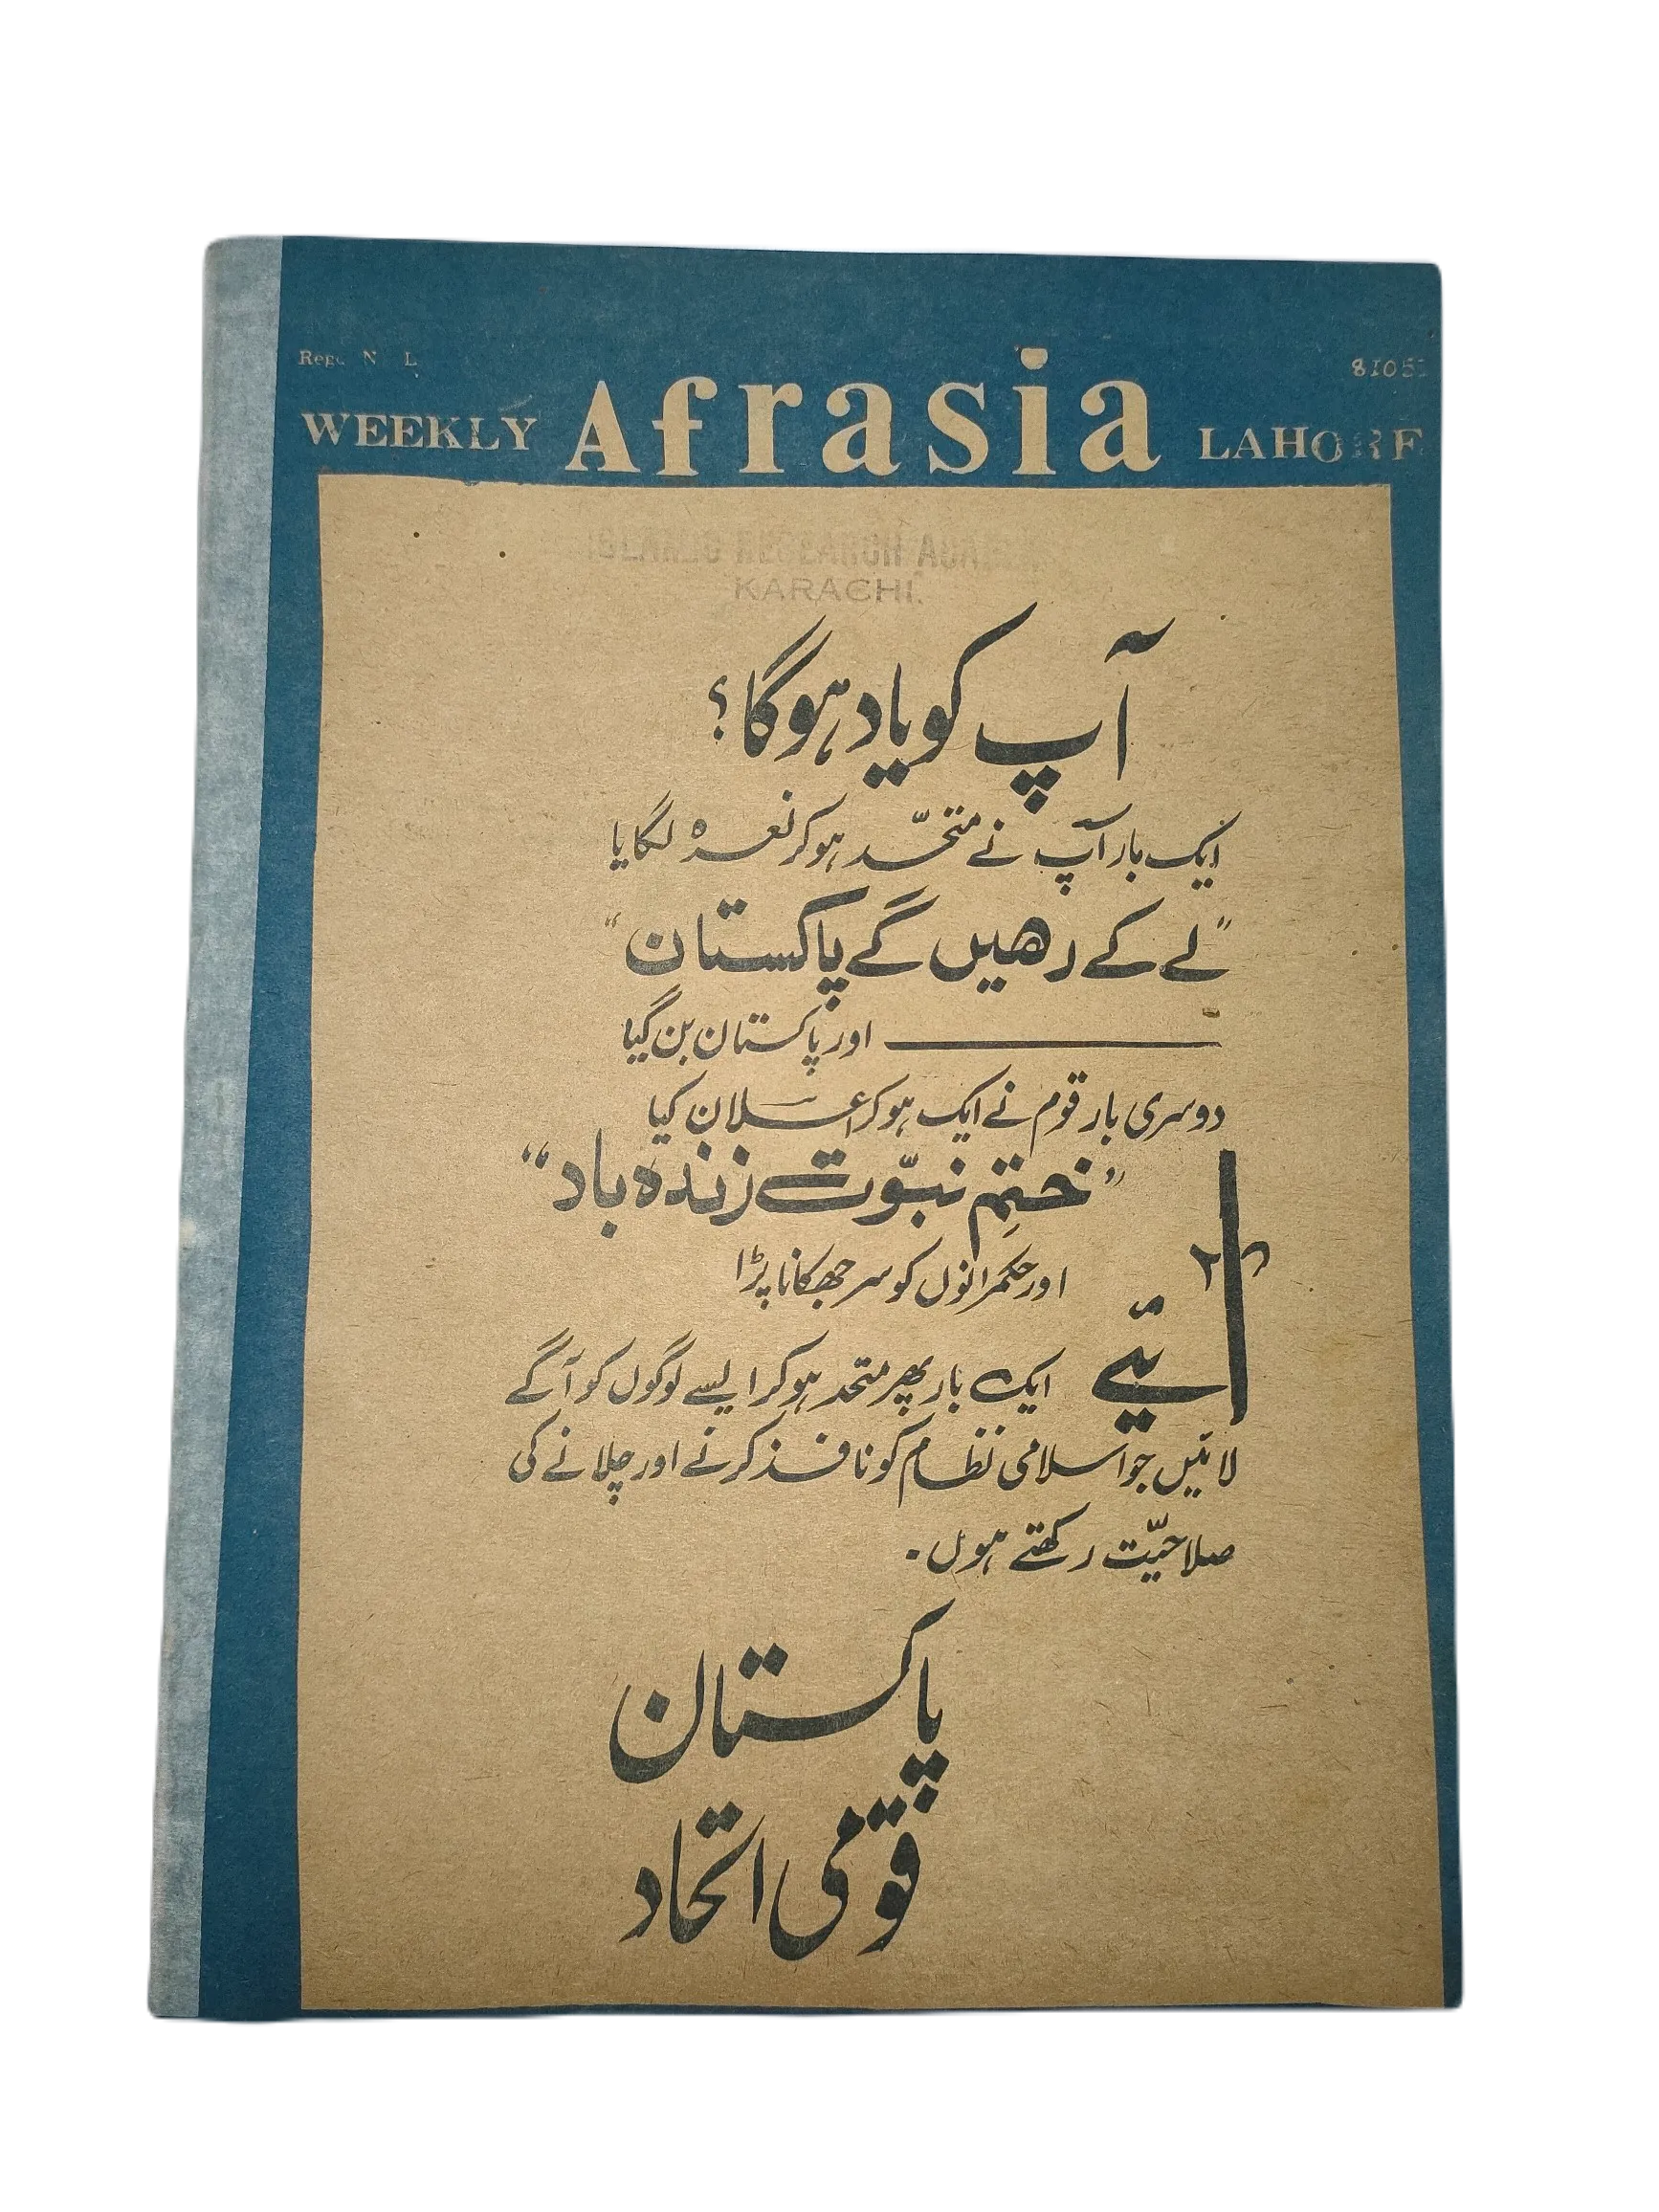 WEEKLY Afrasia LAHORE
8105
ISLAMIC RESEARCH
KARACHI.
آپ کو یاد ہوگا؟
ایک بار آپ نے متحّد ہو کر نعرہ لگایا
"لے کے رھیں گے پاکستان"
اور پاکستان بن گیا
دوسری بار قوم نے ایک ہو کر اعلان کیا
"ختمِ نبوّت زندہ باد"
اور حکمرانوں کو سر جھکانا پڑا
آیئے ایک بار پھر متحد ہو کر ایسے لوگوں کو آگے
لائیں جو اسلامی نظام کو نافذ کرنے اور چلانے کی
صلاحیّت رکھتے ہوں۔
پاکستان
قومی اتحاد